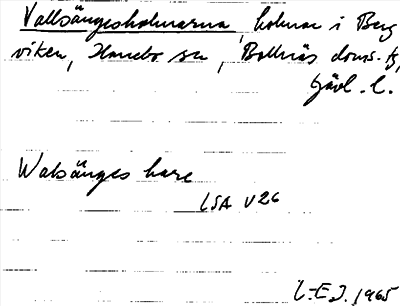 Vallsängesholmarna, holmar i Berg
viken, Hanebo sn, Bollnäs doms. tg,
Gävl. l.
Walsänges hare
LSA V26
L-E.J. 1965